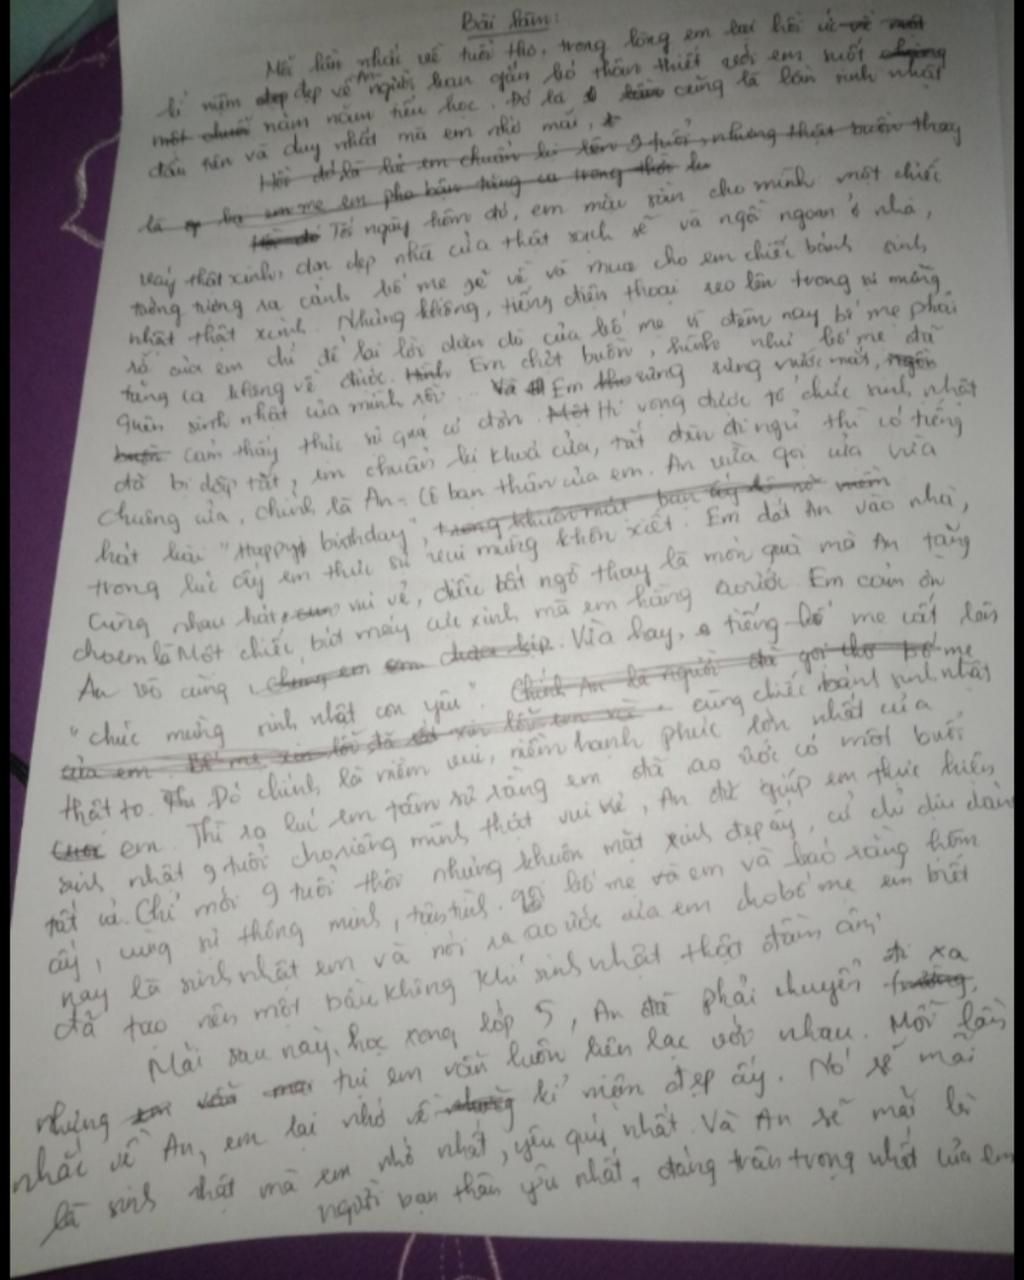 Bài làm:
Mỗi lần nhắc về tuổi thơ, trong lòng em lại hồi ức về một
kỉ niệm đẹp đẹp về người bạn gắn bó thân thiết với em suốt
một năm năm tiểu học. Đó là cũng là lần sinh nhật
đầu tiên và duy nhất mà em nhớ mãi,
Hồi đó là lúc em chuẩn bị lên 9 tuổi, nhưng thật buồn thay
là mẹ em tăng ca trong
Tối ngày hôm đó, em màu sẵn cho mình một chiếc
váy thật xinh, dọn dẹp nhà cửa thật sạch sẽ và ngồi ngoan ở nhà,
tưởng tượng ra cảnh bố mẹ sẽ về và mua cho em chiếc bánh sinh
nhật thật xinh. Nhưng không, tiếng điện thoại reo lên trong vi mừng
số của em chỉ để lại lời dặn dò của bố mẹ vì đêm nay bố mẹ phải
tăng ca không về được. Em chút buồn, hình như bố mẹ đã
quên sinh nhật của mình rồi... Và Em rưng rưng nước mắt,
buồn cảm thấy thực sự quá cô đơn. Một Hi vọng được tổ chức sinh nhật
đã bị dập tắt, em chuẩn bị khoá cửa, tắt đèn đi ngủ thì có tiếng
chuông cửa, chính là An - Cô bạn thân của em. An vừa gọi cửa vừa
hát bài "Happy birthday", trong khuôn mặt bạn ấy
trong lúc ấy em thực sự vui mừng khôn xiết. Em dắt An vào nhà,
cùng nhau hát vui vẻ, điều bất ngờ thay là món quà mà An tặng
cho em là Một chiếc bút máy cực xinh mà em hằng ao ước. Em cảm ơn
An vô cùng, chưa kịp. Vừa hay, tiếng bố mẹ cất lên
"chúc mừng sinh nhật con yêu". Chính An là người đã gọi cho bố mẹ
của em. Bố mẹ xin lỗi cùng chiếc bánh sinh nhật
thật to. Đó chính là niềm vui, niềm hạnh phúc lớn nhất của
em. Thì ra lúc em tâm sự rằng em đã ao ước có một buổi
sinh nhật 9 tuổi cho riêng mình thật vui vẻ, An đã giúp em thực hiện
tất cả. Chỉ mới 9 tuổi thôi nhưng khuôn mặt xinh đẹp ấy, cử chỉ dịu dàng
ấy, cùng sự thông minh, bố mẹ và em và bảo rằng hôm
nay là sinh nhật em và nói ra ao ước của em cho bố mẹ em biết
đã tạo nên một bầu không khí sinh nhật thật đầm ấm.
Mãi sau này, học xong lớp 5, An đã phải chuyển đi xa trường,
nhưng tụi em vẫn luôn liên lạc với nhau. Mỗi lần
nhắc về An, em lại nhớ về kỉ niệm đẹp ấy. Nó sẽ mãi
là sinh nhật mà em nhớ nhất, yêu quý nhất. Và An sẽ mãi là
người bạn thân yêu nhất, đáng trân trọng nhất của em